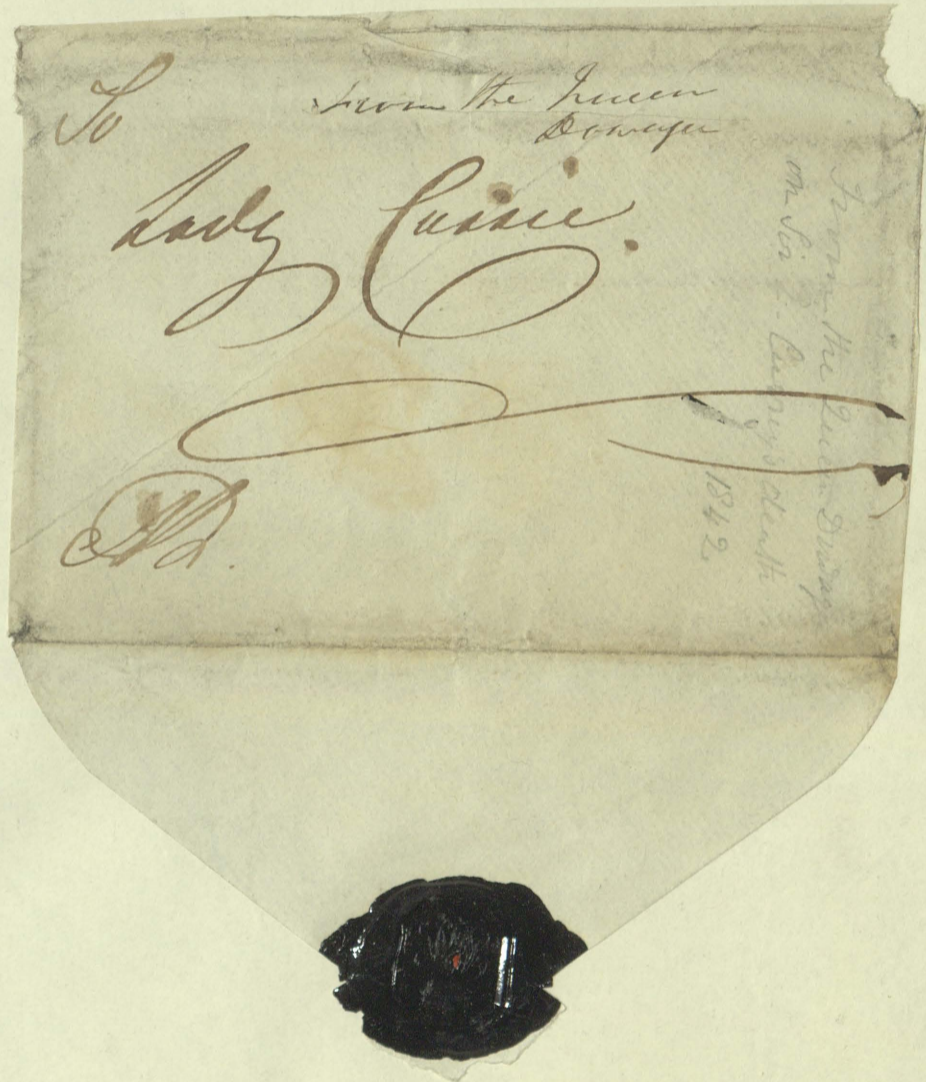 To
From the Queen
Dowager
Lady Cussie.
From the Queen Dowager
on Sir
death
1842.